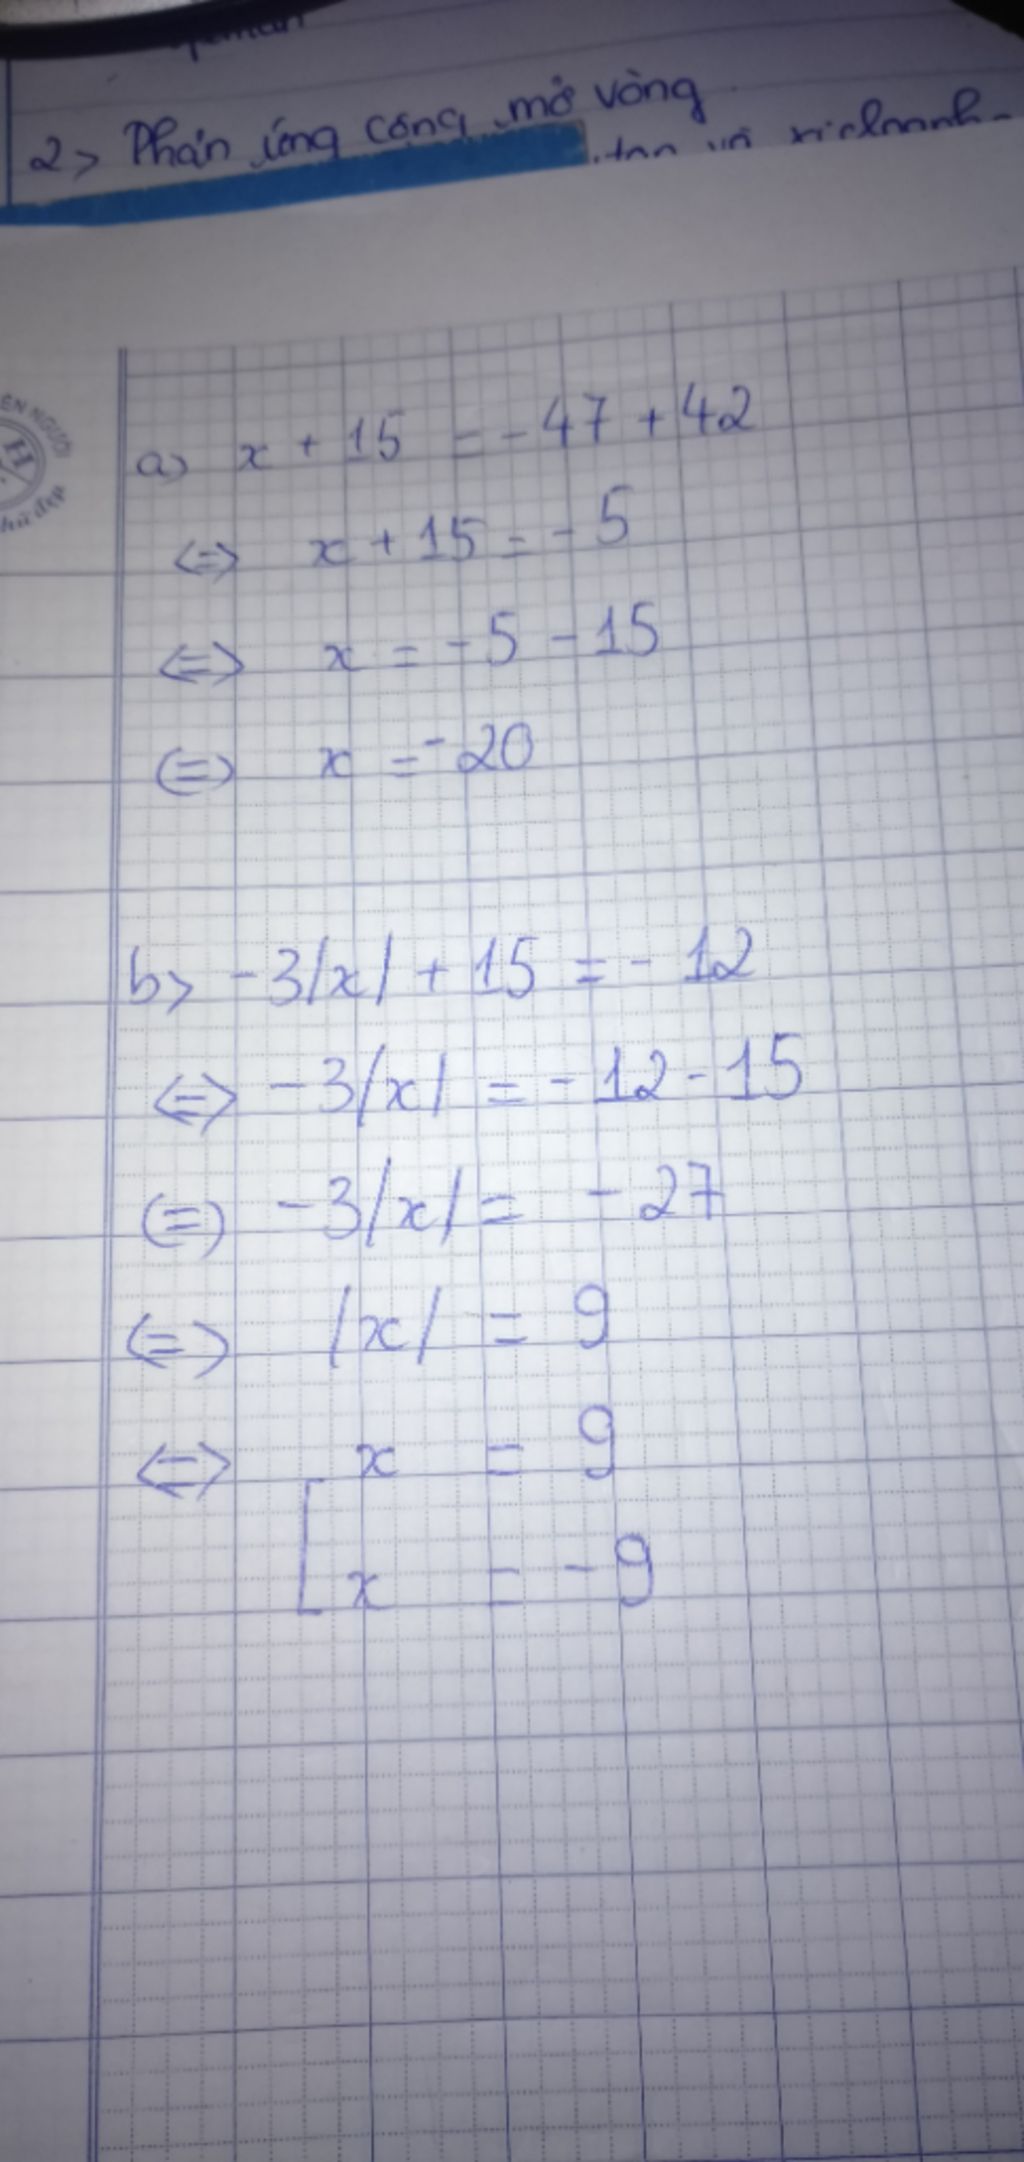 2> Phản ứng cộng mở vòng
và
ÊN NGƯỜI
H
chữ đẹp
a) x + 15 = - 47 + 42
<=> x + 15 = - 5
<=> x = - 5 - 15
<=> x = - 20
b> - 3|x| + 15 = - 12
<=> - 3|x| = - 12 - 15
<=> - 3|x| = - 27
<=> |x| = 9
<=> [ x = 9
x = - 9